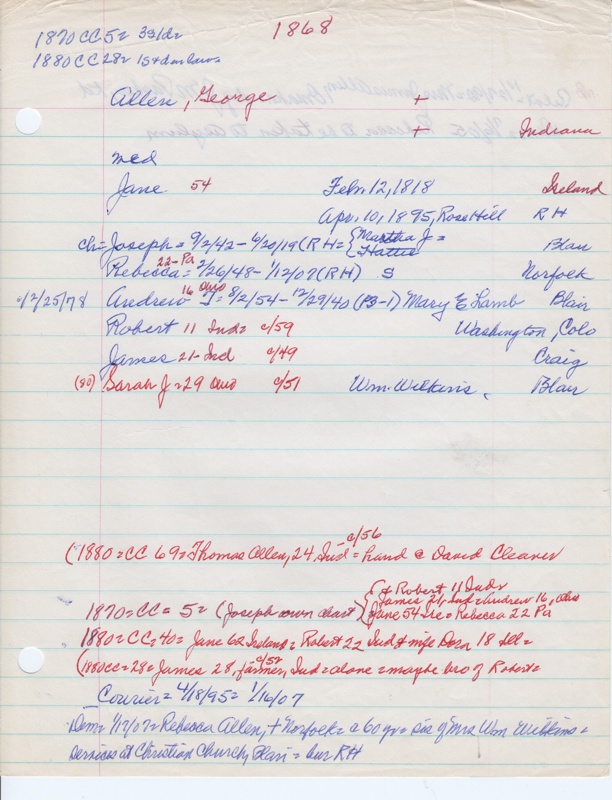 1868
1870 CC 5=
1880 CC 28=
Allen, George +
+ Indiana
med
Jane 54 Feb. 12, 1818 Ireland
Apr. 10, 1895, Rose Hill R H
ch= Joseph = 9/2/42 - 6/20/19 (RH = { Martha J = Blair
Hattie
22-Pa
Rebecca = 2/26/48 - 1/12/07 (RH) S Norfolk
16 Ohio
12/25/78 Andrew T = 8/2/54 - 12/29/40 (B-1) Mary E Lamb Blair
Robert 11 Ind= c/59 Washington, Colo
James 21-Ind c/49 Craig
(80) Sarah J = 29 Ohio c/51 Wm. Wilkins Blair
c/56
(1880 = CC 69 = Thomas Allen, 24 Ind = hand @ David Cleaver
{ + Robert 11 Ind=
James 21, Ind = Andrew 16, Ohio
1870 = CC = 5 = (Joseph own chart) { Jane 54 Ire = Rebecca 22 Pa
1880 = CC = 40 = Jane 62 Ireland = Robert 22 Ind + wife Dora 18 Ill =
c/52
(1880 CC = 28 = James 28, farmer, Ind = alone = maybe bro of Robert =
Courier = 4/18/95 = 1/16/07
Dem = 1/12/07 = Rebecca Allen, + Norfolk = @ 60 yr = sis of Mrs Wm Wilkins =
services at Christian Church, Blair = bur RH